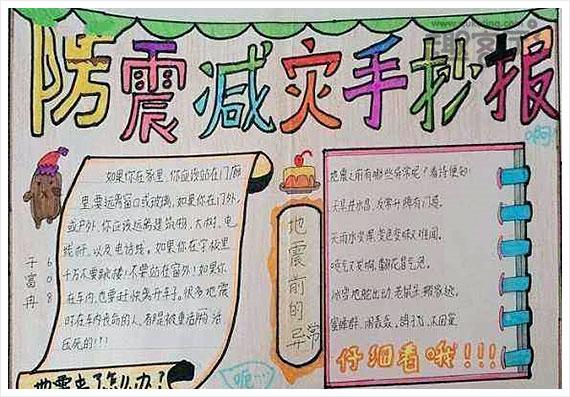 防震减灾手抄报
啊
如果你在家里,你应该站在门廊
里,要远离窗口或玻璃,如果你在门外,
或户外,你应该远离建筑物、大树、电
线杆、以及电话线。如果你在学校里
千万不要跳楼!不要站在窗外!如果你
在车内,也要赶快离开车子。很多地震
时在车内丧命的人,都是被重活活
压死的!!!
地震来了怎么办?
于富冉
608
地震前的
异常
呃
地震之前有哪些异常呢?看诗便知:
天旱井水冒,反常升降有门道。
天雨水变浑,变色变味又难闻。
喷气又发响,翻花冒气泡。
冰雪地蛇出动,老鼠
蜜蜂群,闹轰轰,鸽子飞,不回巢
仔细看哦!!!